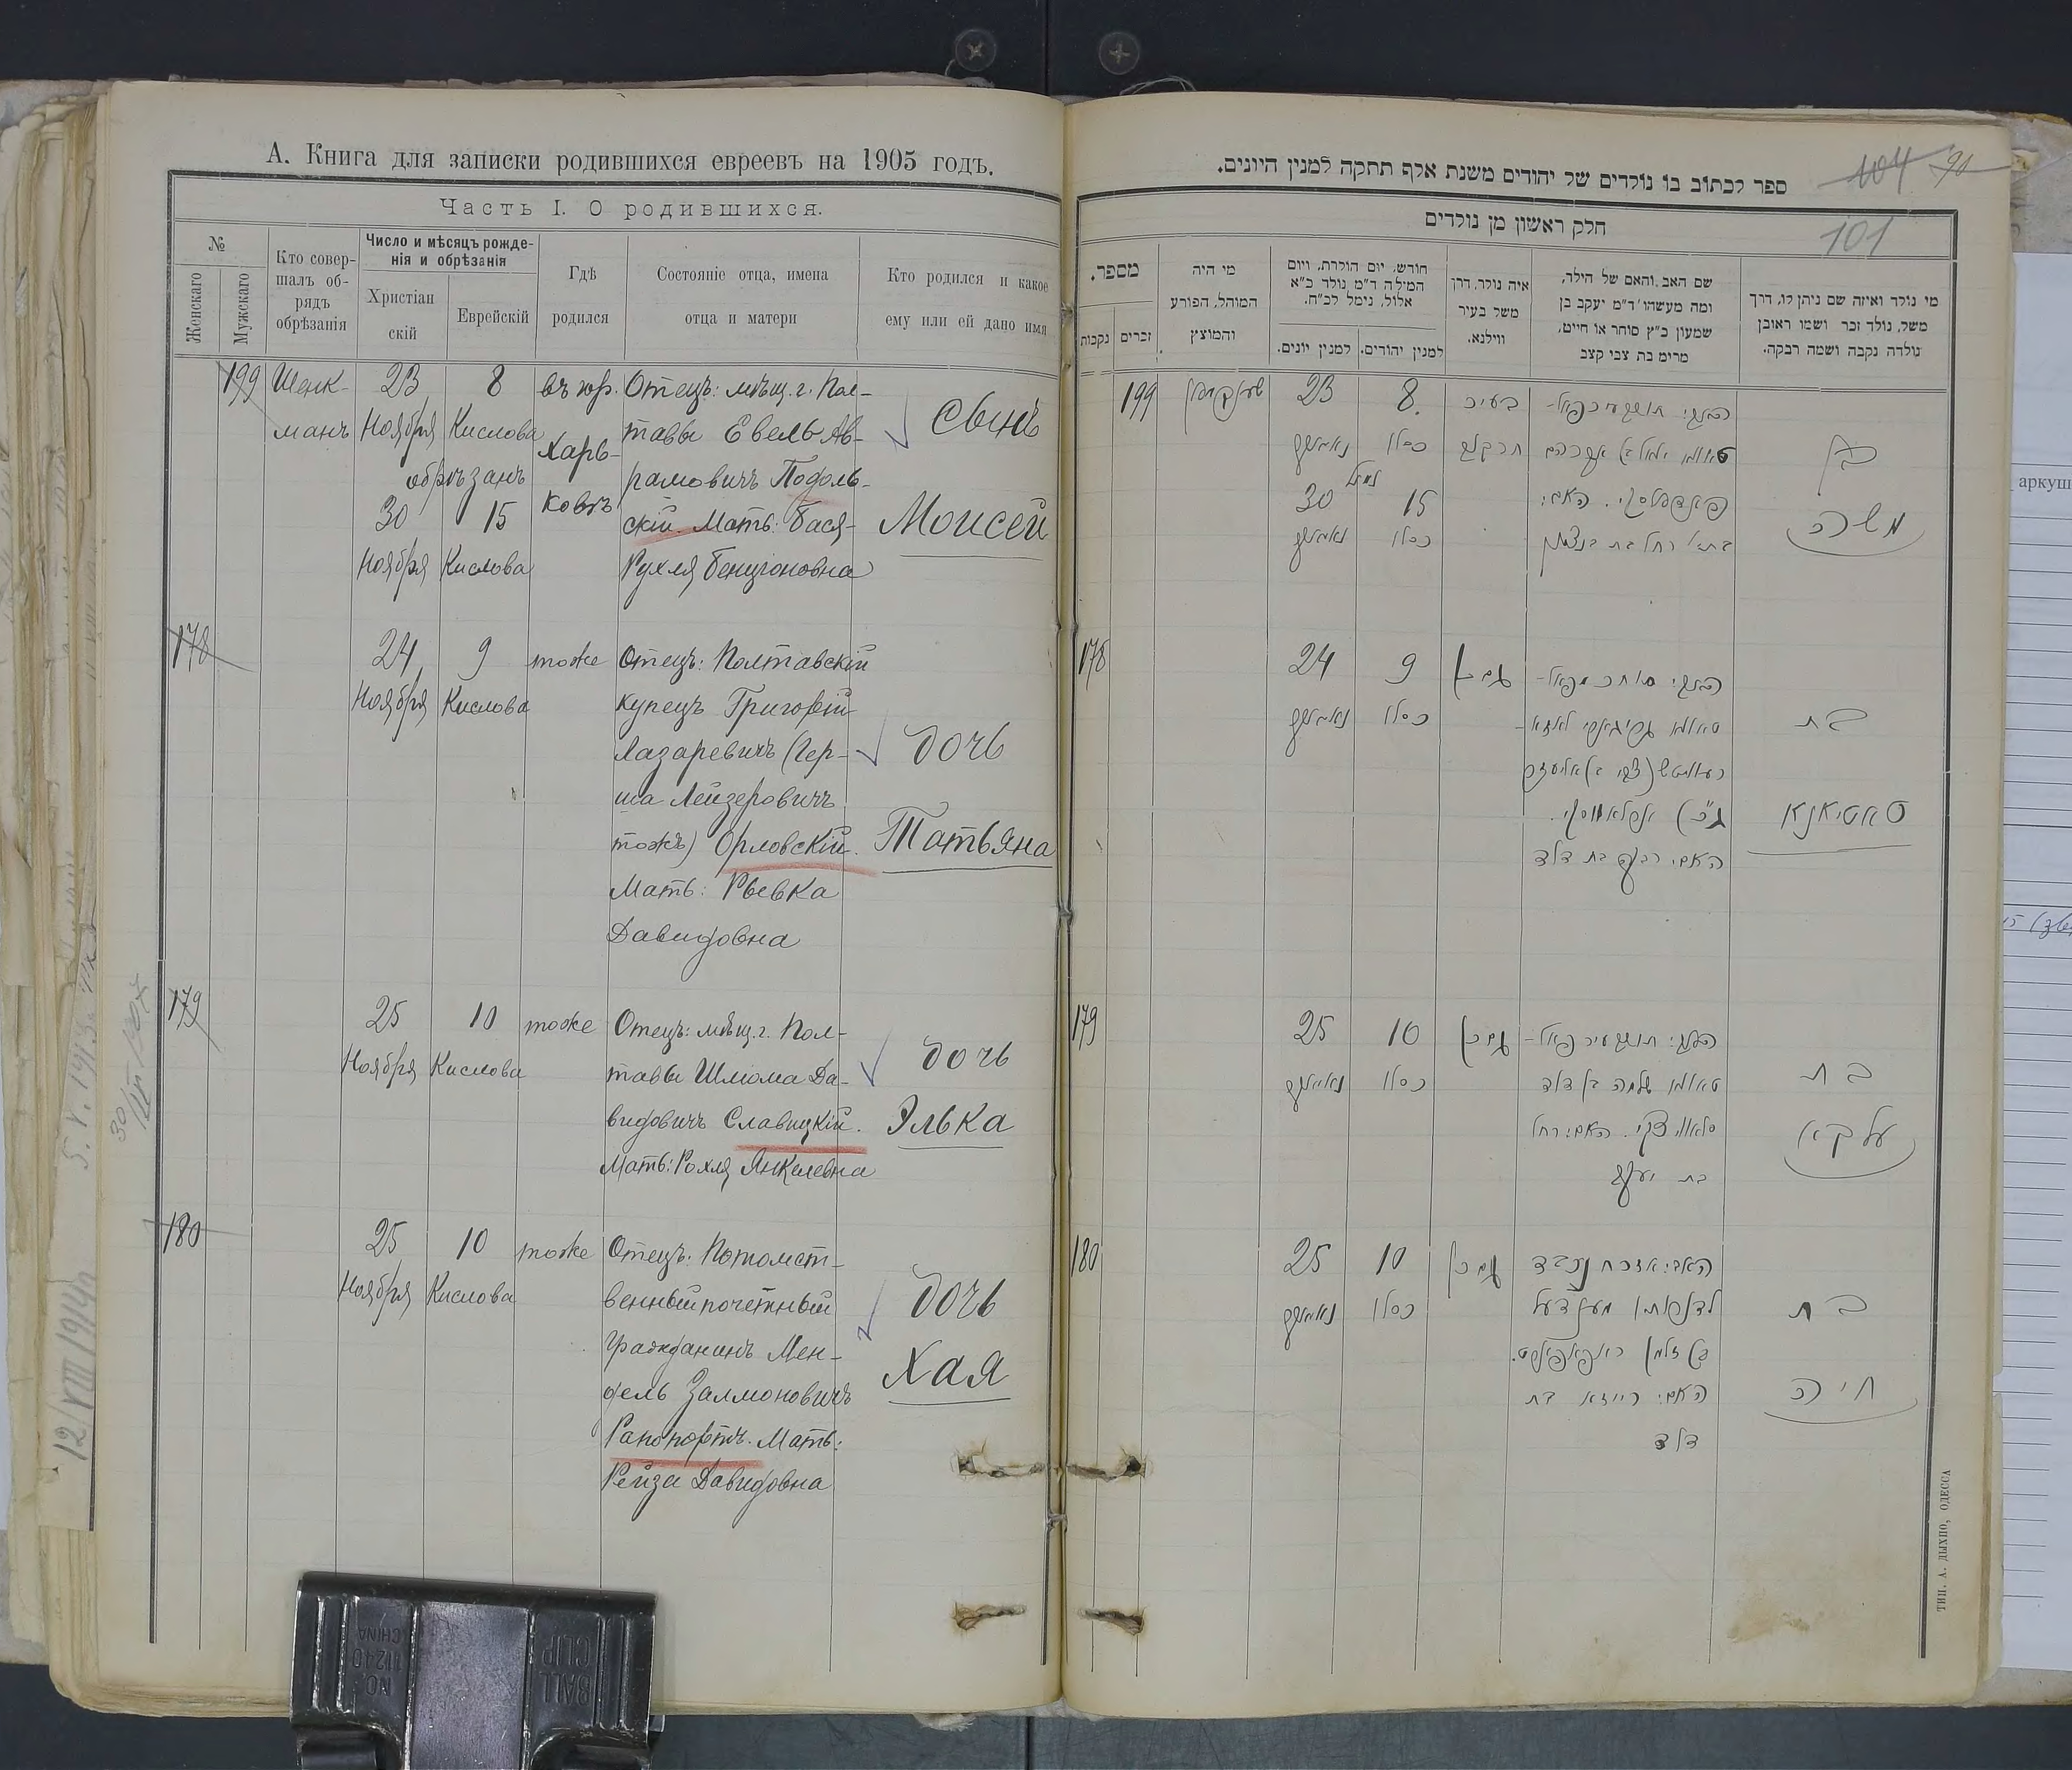 А. Книга для записки родившихся евреевъ на 1905 годъ.
Часть I. О родившихся.
№
Женскаго
Мужскаго
Кто совер-
шалъ об-
рядъ
обрѣзанія
Число и мѣсяцъ рожде-
нія и обрѣзанія
Христіан
скій
Еврейскій
Гдѣ
родился
Состояніе отца, имена
отца и матери
Кто родился и какое
ему или ей дано имя
199
Шенк-
манъ
23
Ноября
8
Кислова
обрѣзанъ
30
Ноября
15
Кислова
въ гор.
Харь-
ковѣ
Отецъ: мѣщ. г. Пол-
тавы Евель Ав-
рамовичъ Подоль-
скій. Мать: Бася-
Рухля Бенціоновна
сынъ
Моисей
178
24
Ноября
9
Кислова
тоже
Отецъ: Полтавскій
купецъ Григорій
Лазаревичъ (Гер-
ша Лейзеровичъ
тожъ) Орловскій.
Мать: Рывка
Давидовна
дочь
Татьяна
179
25
Ноября
10
Кислова
тоже
Отецъ: мѣщ. г. Пол-
тавы Шлiома Да-
видовичъ Славуцкій.
Мать: Рохля Янкелевна
дочь
Элька
180
25
Ноября
10
Кислова
тоже
Отецъ: Потомст-
венный почетный
гражданинъ Мен-
дель Залмоновичъ
Рапопортъ. Мать:
Рейза Давидовна
дочь
Хая
5. V. 1915
12/VIII 1914
104 90
101
ספר לכתוב בו נולדים של יהודים משנת אלף תתקה למנין היונים.
חלק ראשון מן נולדים
מספר.
נקבות
זכרים
מי היה
המוהל, הפורע
והמוצץ
חודש, יום הולדת, ויום
המילה ד"מ נולד כ"א
אלול, נימל לכ"ח.
למנין יונים.
למנין יהודים.
איה נולד, דרך
משל בעיר
ווילנא.
שם האב והאם של הילד,
ומה מעשהו ד"מ יעקב בן
שמעון כ"ץ סוחר או חייט,
מרים בת צבי קצב
מי נולד ואיזה שם ניתן לו, דרך
משל, נולד זכר ושמו ראובן
נולדה נקבה ושמה רבקה.
199
שענקמאן
23
8.
כסלו
30
15
כסלו
בעיר
חרקוב
בן
משה
178
24
9
כסלו
גם כן
האם: רבקה בת דוד
בת
טאטיאנא
179
25
10
כסלו
גם כן
בת יעקב
בת
עלקא
180
25
10
כסלו
גם כן
האב: אזרח נכבד
לדורותיו מענדעל
בן זלמן ראפאפארט.
האם: רייזא בת
דוד
בת
חיה
ТИП. А. ДЫХНО, ОДЕССА
аркуш
BALL
CLIP
NO.
11240
CHINA